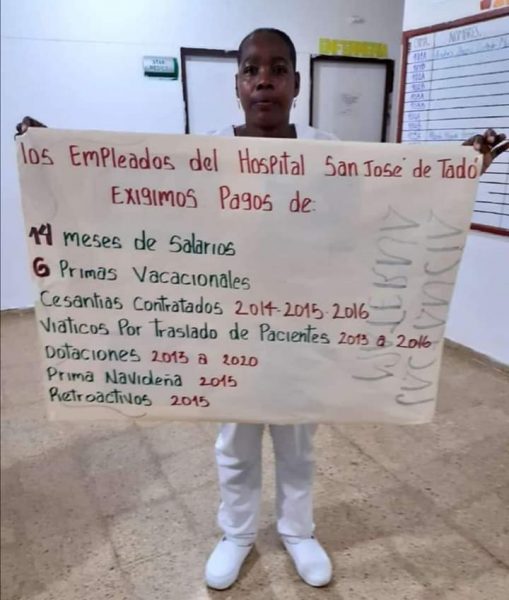 los Empleados del Hospital San José de Tadó
Exigimos Pagos de:
14 meses de Salarios
6 Primas Vacacionales
Cesantias Contratados 2014-2015-2016
Viaticos Por Traslado de Pacientes 2013 a 2016
Dotaciones 2013 a 2020
Prima Navideña 2015
Retroactivos 2015
NOMBRES